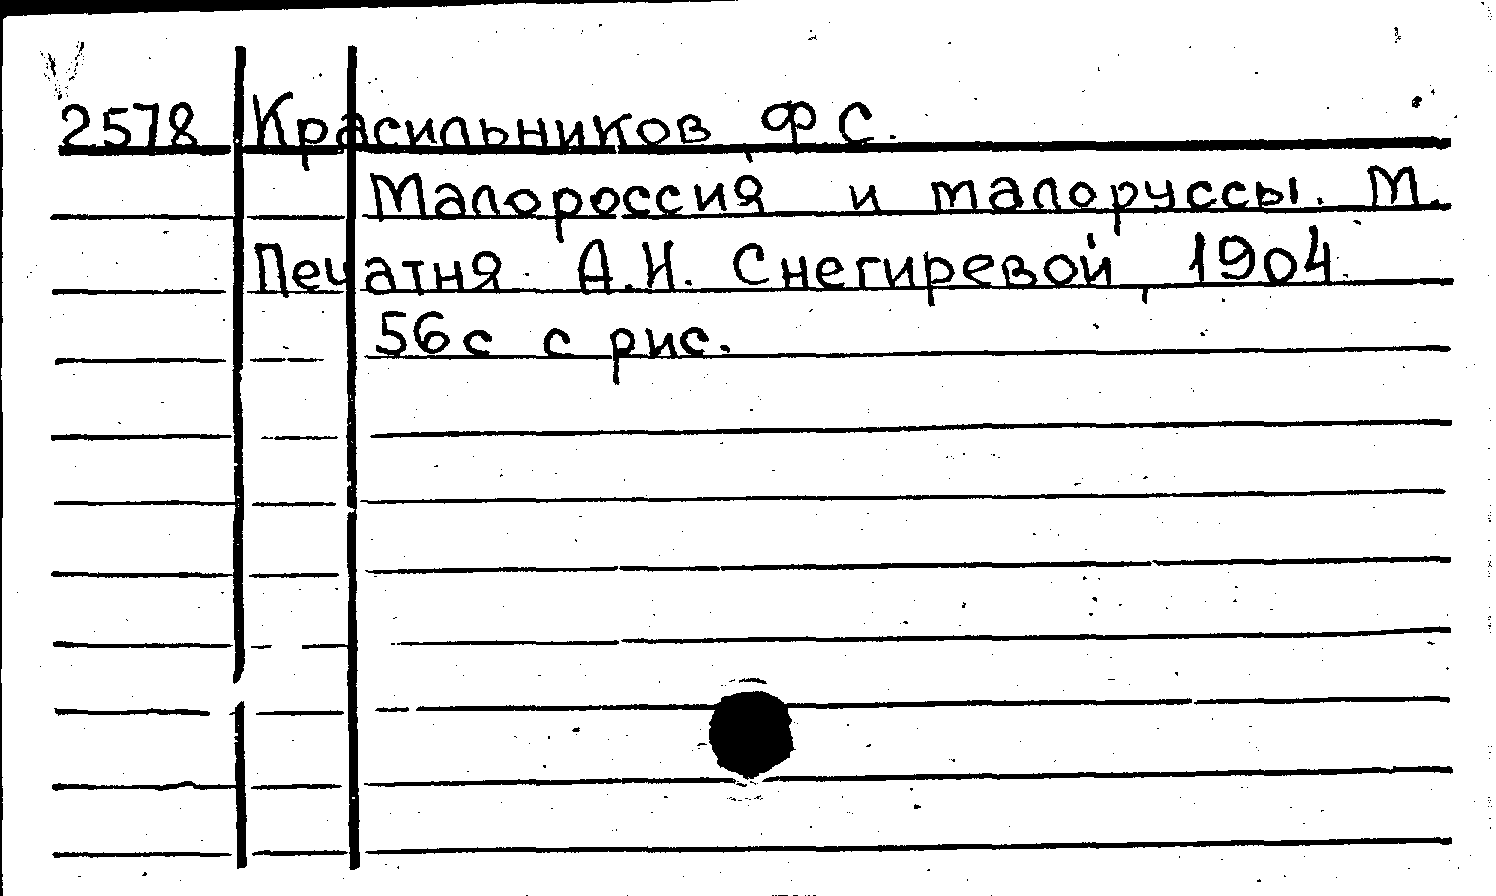 2578 Красильников, Ф.С.
Малороссия и малоруссы. М.
Печатня А.И. Снегиревой, 1904.
56с с рис.